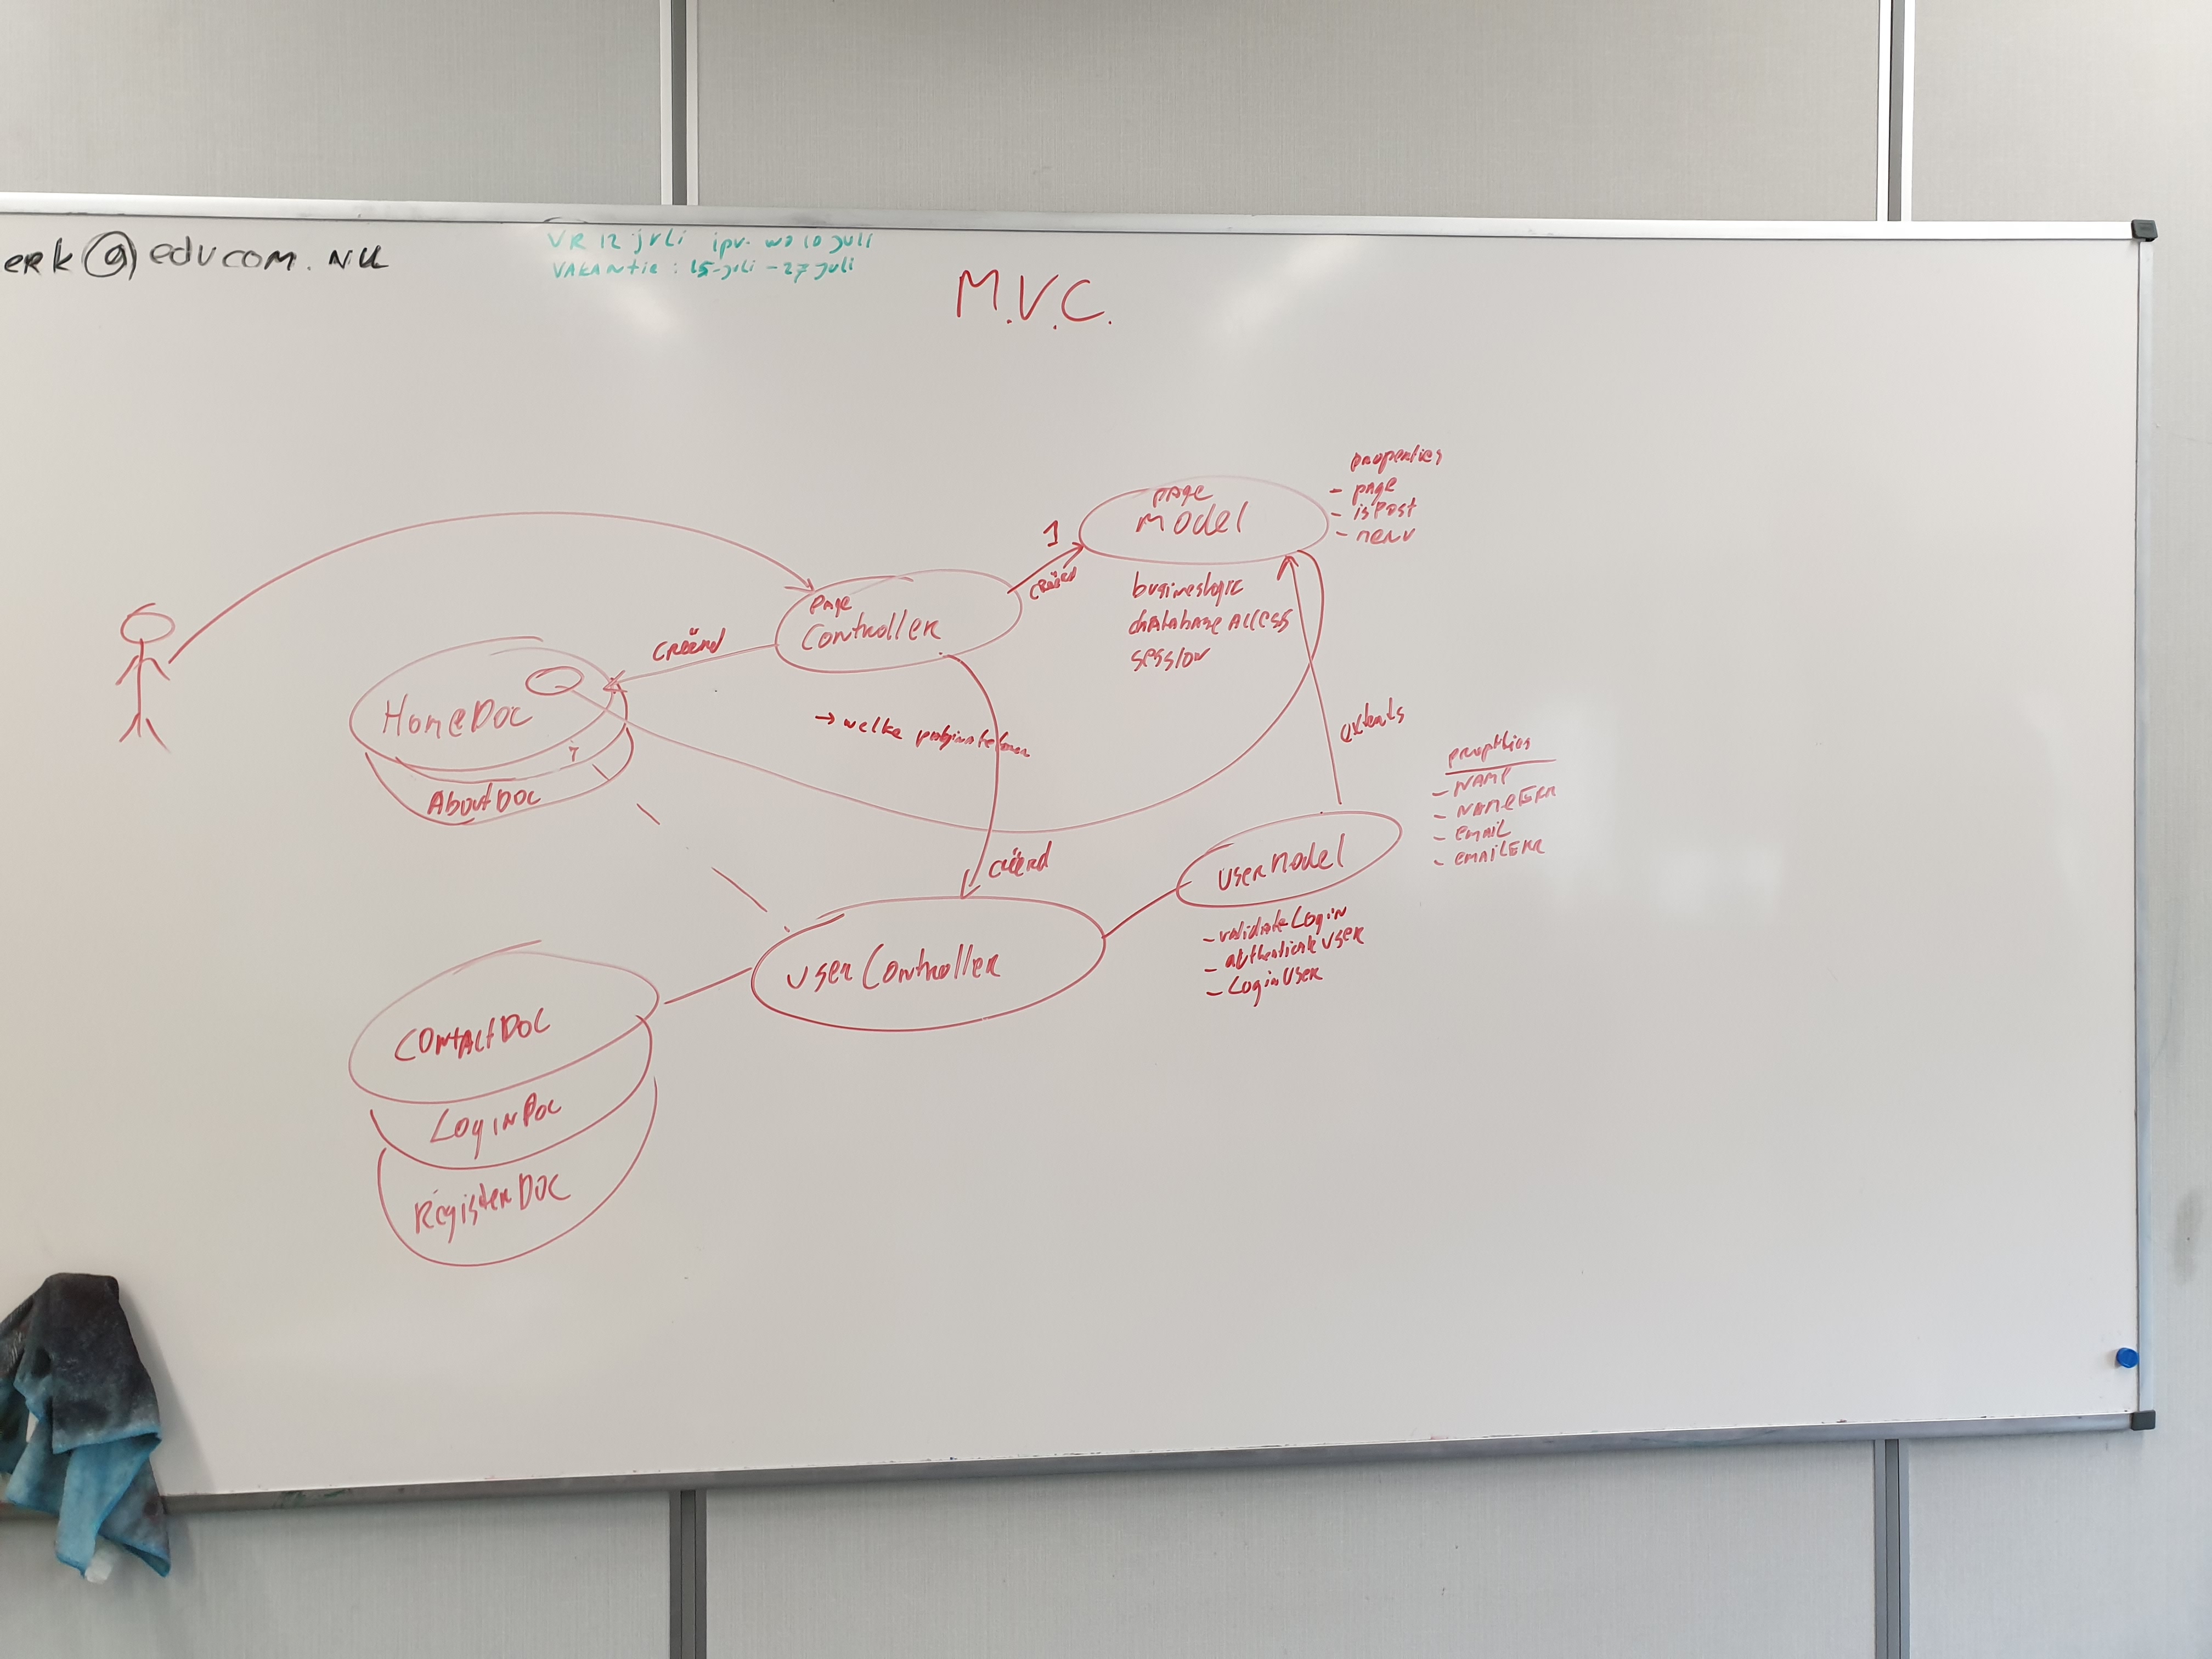 erk@educom.nu
VR 12 juli ipv. wo 10 juli
VAKANtie : 15-juli - 27 juli
M.V.C.
properties
- page
- isPost
- menu
page
Model
1
creëerd
businesslogic
database Access
session
page
Controller
creëerd
HomeDoc
?
AboutDoc
→ welke pagina te tonen
extents
creëerd
propertios
- NAME
- NAMEERR
- EMAIL
- EMAILERR
userModel
- validateLogin
- authenticateUser
- LoginUser
userController
CONTACTDOC
LoginDoc
RegisterDoc